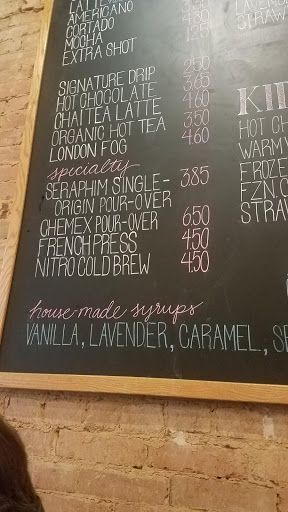 AMERICANO
CORTADO
MOCHA
EXTRA SHOT
SIGNATURE DRIP 2.50
HOT CHOCOLATE 3.65
CHAI TEA LATTE 4.60
ORGANIC HOT TEA 3.50
LONDON FOG 4.60
specialty
SERAPHIM SINGLE- 3.85
ORIGIN POUR-OVER
CHEMEX POUR-OVER 6.50
FRENCH PRESS 4.50
NITRO COLD BREW 4.50
house-made syrups
VANILLA, LAVENDER, CARAMEL, SE
STRAW
HOT CH
WARM
FROZE
FZN. C
STRA